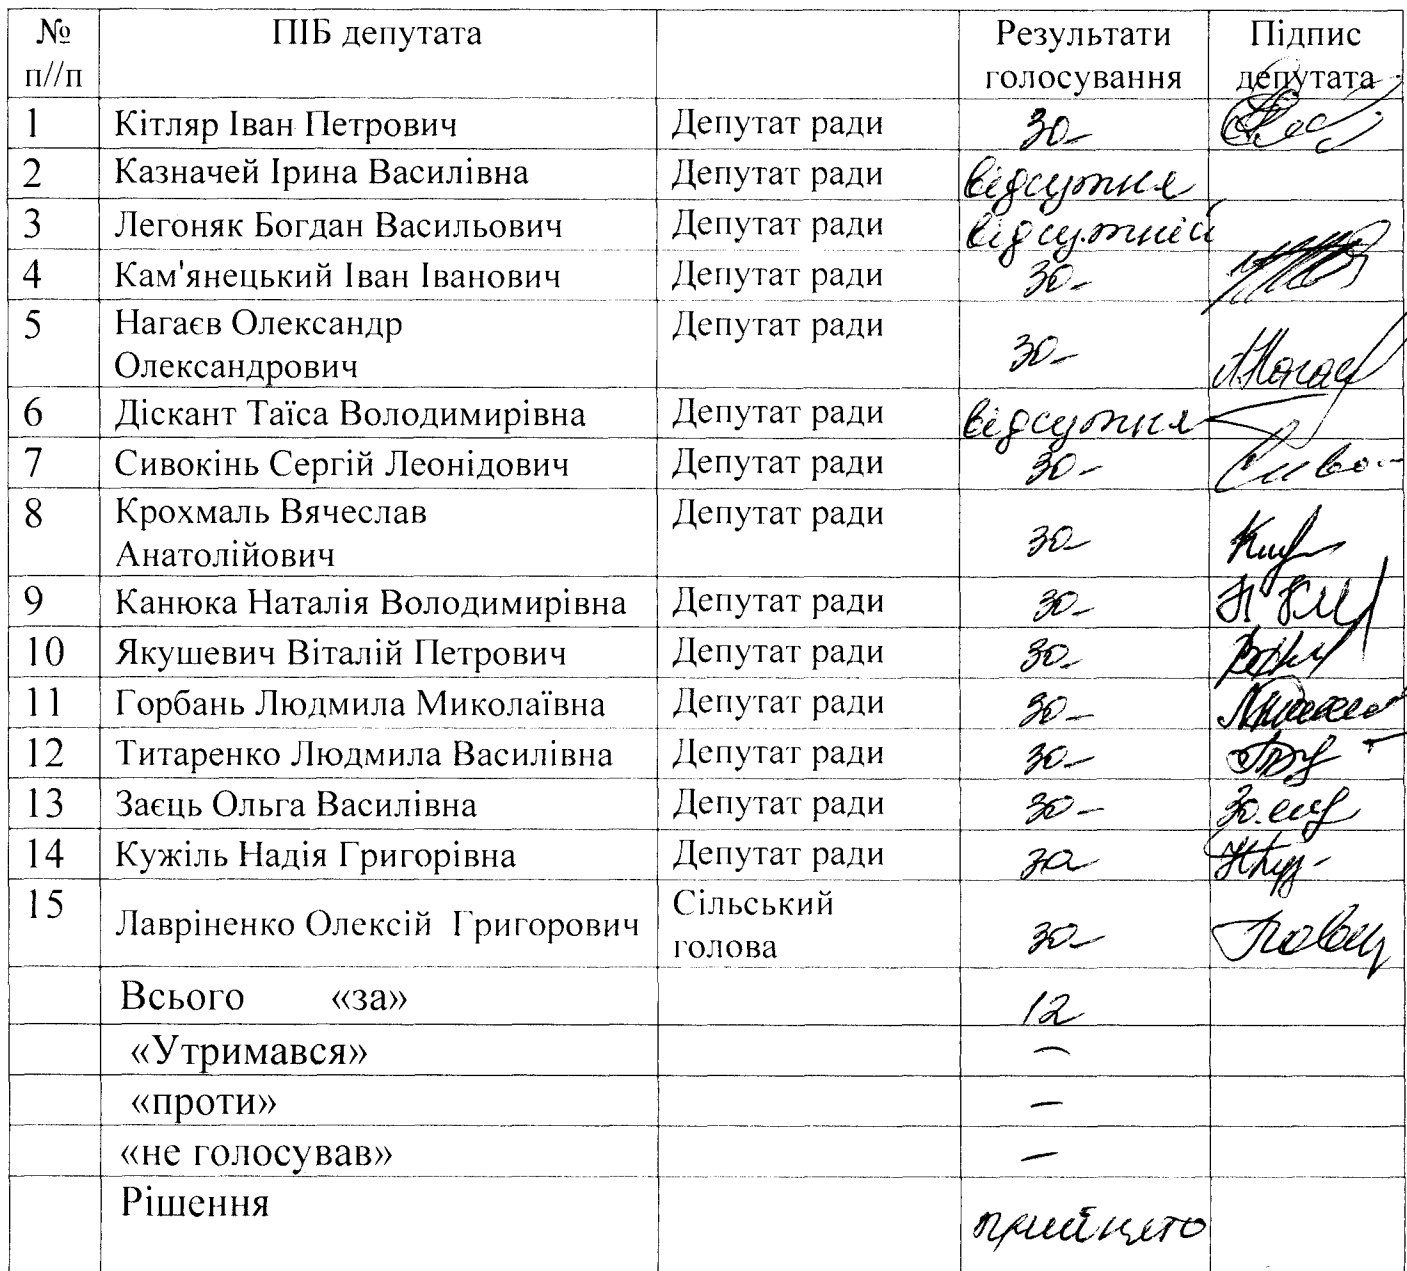 № п//п ПІБ депутата Результати голосування Підпис депутата
1 Кітляр Іван Петрович Депутат ради за
2 Казначей Ірина Василівна Депутат ради відсутня
3 Легоняк Богдан Васильович Депутат ради відсутній
4 Кам'янецький Іван Іванович Депутат ради за
5 Нагаєв Олександр Олександрович Депутат ради за
6 Діскант Таїса Володимирівна Депутат ради відсутня
7 Сивокінь Сергій Леонідович Депутат ради за
8 Крохмаль Вячеслав Анатолійович Депутат ради за
9 Канюка Наталія Володимирівна Депутат ради за
10 Якушевич Віталій Петрович Депутат ради за
11 Горбань Людмила Миколаївна Депутат ради за
12 Титаренко Людмила Василівна Депутат ради за
13 Заєць Ольга Василівна Депутат ради за
14 Кужіль Надія Григорівна Депутат ради за
15 Лавріненко Олексій Григорович Сільський голова за
Всього «за» 12
«Утримався» –
«проти» –
«не голосував» –
Рішення прийнято